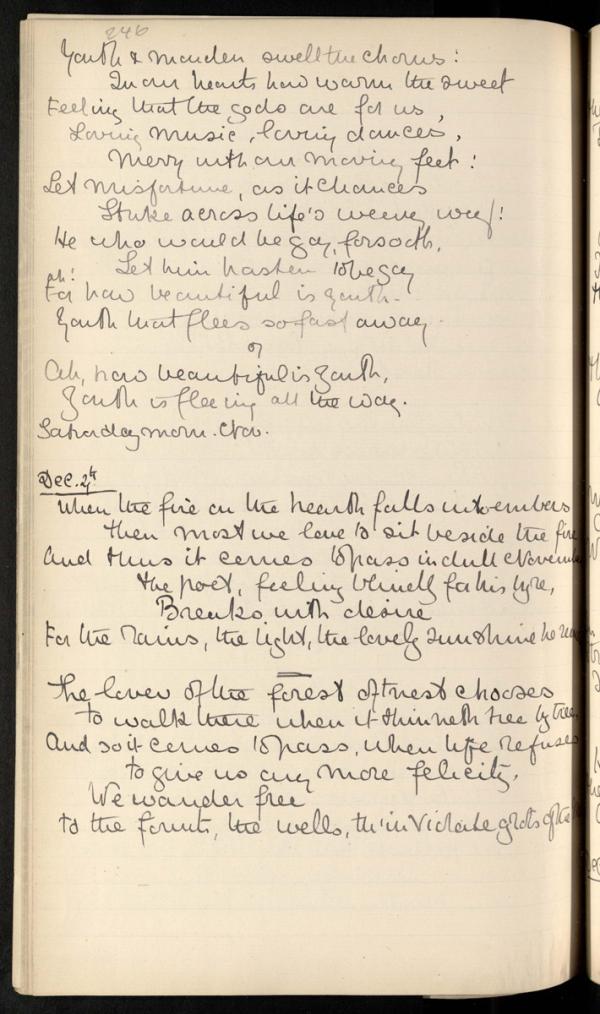 246
Youth & maiden swell the chorus:
In our hearts how warm the sweet
Feeling that the gods are for us,
Loving music, loving dances,
Merry with our moving feet!
Let misfortune, as it chances
Strike across life's weeny!
He who would be gay, forsooth,
Let him hasten to be gay
ah!
For how beautiful is youth -
Youth that flees so fast away.
or
Ah, how beautiful is Youth,
Youth is fleeing all the way.
Saturday morn. Nov.
Dec. 2nd
When the fire on the hearth falls into embers
Then most we love to sit beside the fire
And thus it comes to pass in dull November
The poet, feeling blindly for his lyre,
Breaks with desire
For the rains, the light, the lovely sunshine he
The lover of the forest oftnest chooses
To walk there when it thinneth tree by tree,
And so it comes to pass, when life refuses
To give us any more felicity,
We wander free
To the founts, the wells, th' inviolate grots of the